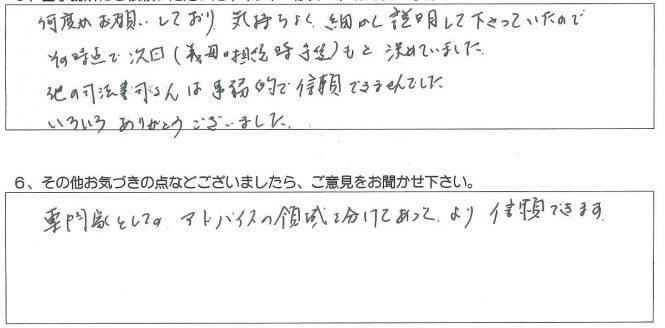 何度かお願いしており、気持ちよく、細かく説明して下さっていたので
その時点で次回(義母の相続時手続)もと決めていました。
他の司法書司さんは事務的で信頼できませんでした。
いろいろありがとうございました。
6、その他お気づきの点などございましたら、ご意見をお聞かせ下さい。
専門家としての、アドバイスの領域を分けてあって、より信頼できます。